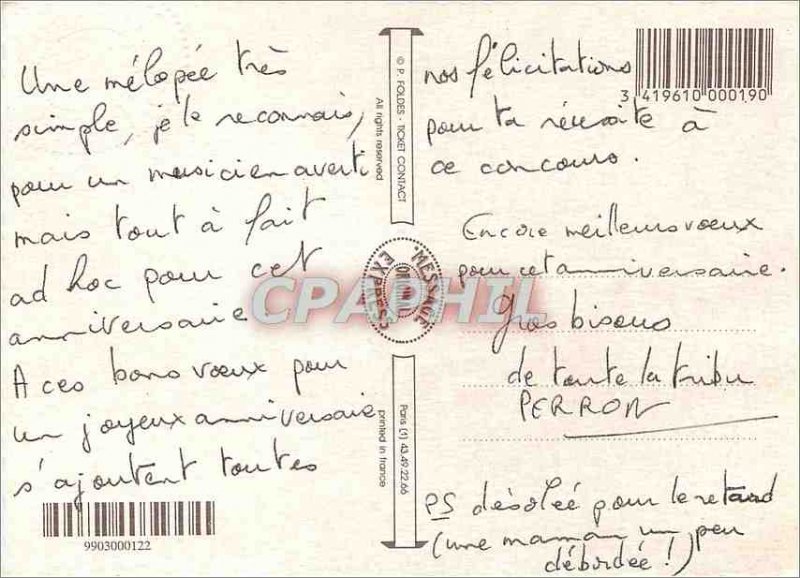 Une mélopée très
simple, je le reconnais,
pour un musicien averti
mais tout à fait
ad hoc pour cet
anniversaire
A ces bons vœux pour
un joyeux anniversaire
s'ajoutent toutes
9903000122
© P. FOLDES - TICKET CONTACT
All rights reserved
MESSAGE
EXPRESS
CPAPHIL
Paris (1) 43.49.22.66
printed in france
nos félicitations
3 419610 000190
pour ta réussite à
ce concours.
Encore meilleurs vœux
pour cet anniversaire.
Gros bisous
de toute la tribu
PERRON
PS désolée pour le retard
(une maman un peu
débordée !)